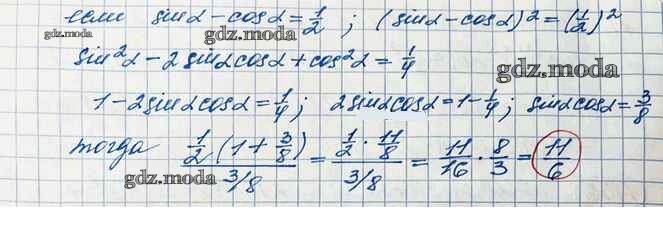 если sinα - cosα = 1/2 ; (sinα - cosα)² = (1/2)²
gdz.moda
gdz.moda
sin²α - 2 sinα cosα + cos²α = 1/4
gdz.moda
1 - 2 sinα cosα = 1/4 ; 2 sinα cosα = 1 - 1/4 ; sinα cosα = 3/8
тогда (1/2 · (1 + 3/8)) / (3/8) = (1/2 · 11/8) / (3/8) = 11/16 · 8/3 = 11/6
gdz.moda